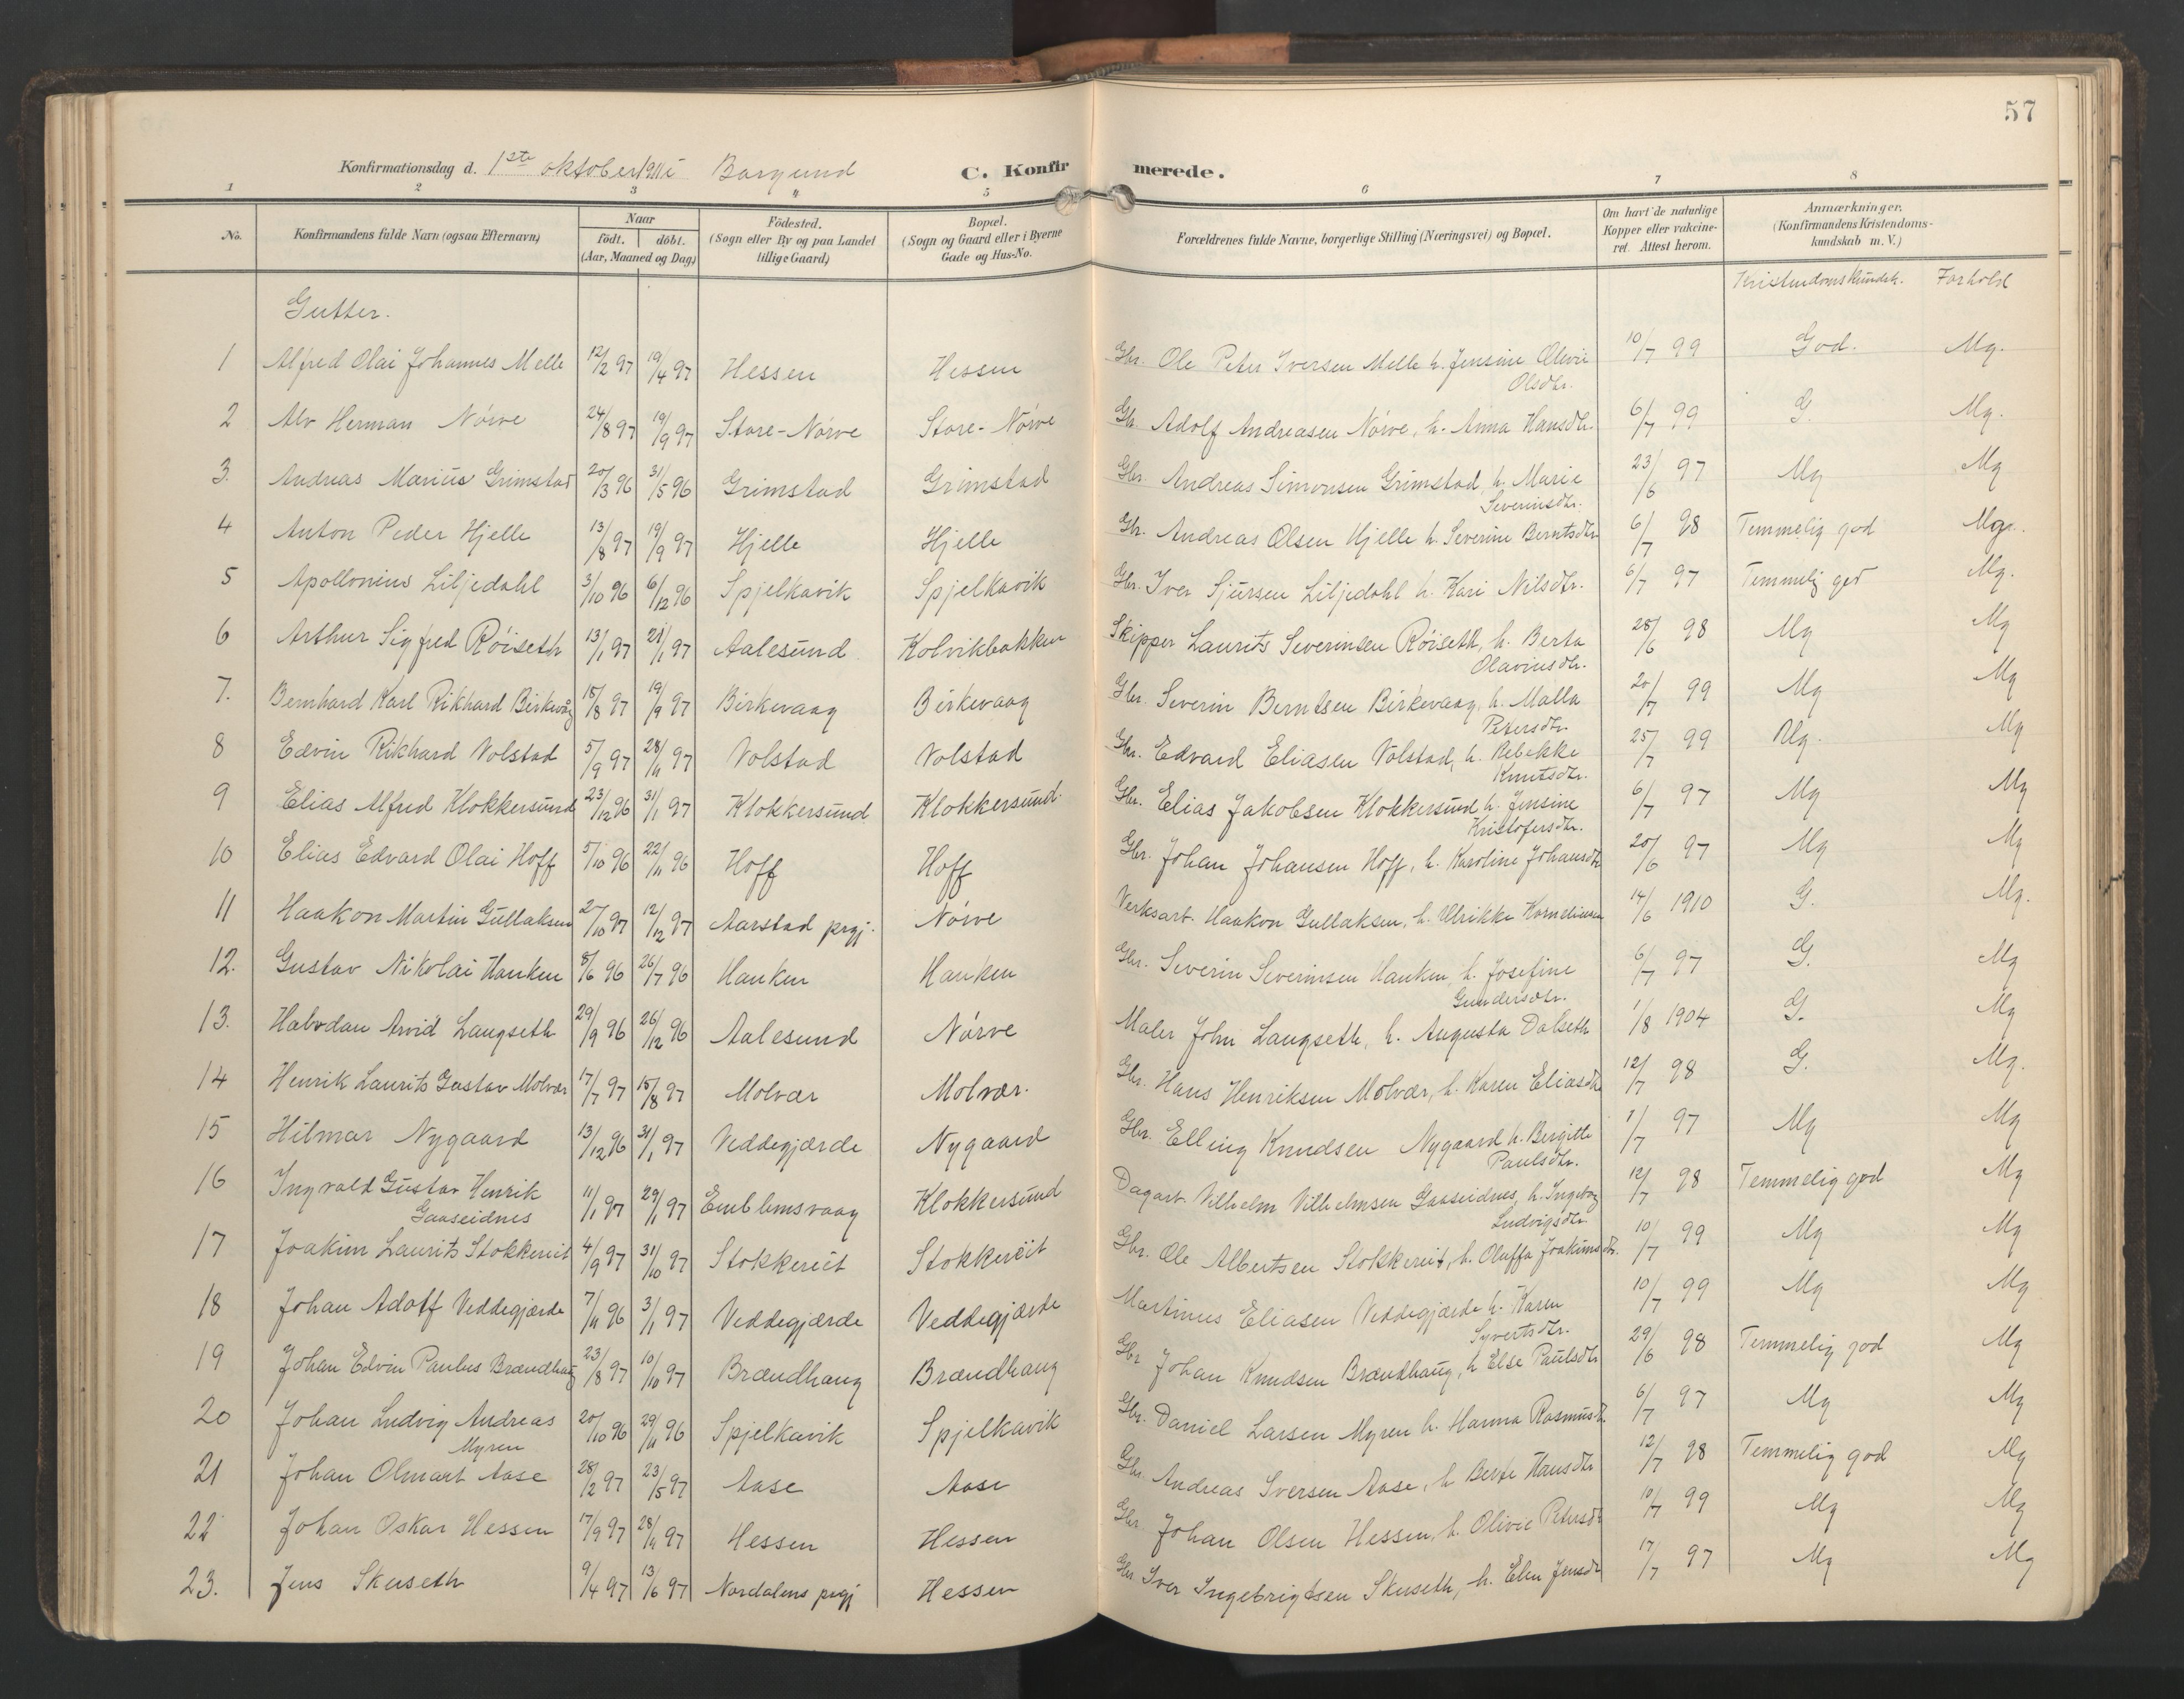 57
Konfirmationsdag d. 1ste oktober 1911 i Borgund C. Konfirmerede.
1 2 3 4 5 6 7 8
No. Konfirmandens fulde Navn (ogsaa Efternavn) Naar födt. döbt. (Aar, Maaned og Dag) Födested. (Sogn eller By og paa Landet tillige Gaard) Bopæl. (Sogn og Gaard eller i Byerne Gade og Hus-No. Forældrenes fulde Navne, borgerlige Stilling (Næringsvei) og Bopæl. Om havt de naturlige Kopper eller vakcineret. Attest herom. Anmærkninger. (Konfirmandens Kristendomskundskab m. V.)
Kristendomskundsk. Forhold
Gutter.
1 Alfred Olai Johannes Melle 12/2 97 19/4 97 Hessen Hessen Gbr. Ole Peter Iversen Melle h. Jensine Olivie Olsdtr. 10/7 99 God. Mg.
2 Alv Herman Nörve 24/8 97 19/9 97 Store-Nörve Store-Nörve Gbr. Adolf Andreasen Nörve, h. Anna Hansdtr. 6/7 99 G Mg.
3. Andreas Marius Grimstad 20/3 96 31/5 96 Grimstad Grimstad Gbr. Andreas Simonsen Grimstad h. Marie Severinsdtr. 23/6 97 Mg Mg
4 Anton Peder Hjelle 13/8 97 19/9 97 Hjelle Hjelle Gbr. Andreas Olsen Hjelle h. Severine Berntsdtr 6/7 98 Temmelig god Mg.
5 Apollonius Liljedahl 3/10 96 6/12 96 Spjelkavik Spjelkavik Gbr. Iver Sjursen Liljedahl h. Kari Nilsdtr. 6/7 97 Temmelig god Mg.
6 Arthur Sigfred Röiseth 13/1 97 21/1 97 Aalesund Kolvikbakken Skipper Laurits Severinsen Röiseth, h. Berta Olavinsdtr. 28/6 98 Mg Mg
7. Bernhard Karl Rikhard Birkevåg 15/8 97 19/9 97 Birkevaag Birkevaag Gbr. Severin Berntsen Birkevaag, h. Malla Petersdtr. 20/7 99 Mg Mg
8 Edvin Rikhard Volstad 5/9 97 28/11 97 Volstad Volstad Gbr. Edvard Eliasen Volstad, h. Rebekke Knutsdtr. 25/7 99 Mg. Mg
9 Elias Alfred Klokkersund 23/12 96 31/1 97 Klokkersund. Klokkersund. Gbr. Elias Jakobsen Klokkersund h. Jensine Kristofersdtr. 6/7 97 Mg Mg
10 Elias Edvard Olai Hoff 5/10 96 22/11 96 Hoff Hoff Gbr. Johan Johansen Hoff, h. Karoline Johansdtr 20/6 97 Mg Mg
11 Haakon Martin Gullaksen 27/10 97 12/12 97 Aarstad prgj. Nörve Verksarb. Haakon Gullaksen, h. Ulrikke Korneliusen 14/6 1910 G. Mg.
12. Gustav Nikolai Hanken 5/6 96 26/7 96 Hanken Hanken Gbr. Severin Severinsen Hanken, h. Josefine Gundersdtr. 6/7 97 G. Mg
13. Halvdan Arvid Langseth 29/9 96 26/12 96 Aalesund Nörve Maler John Langseth, h. Augusta Dalseth 1/8 1904 G. Mg
14 Henrik Laurits Gustav Molvær 17/7 97 15/8 97 Molvær Molvær. Gbr. Hans Henriksen Molvær, h. Karen Eliasdtr 12/7 98 G. Mg.
15 Hilmar Nygaard 13/12 96 31/1 97 Veddegjærde Nygaard Gbr. Elling Knudsen Nygaard h. Bergitte Paulsdtr. 1/7 97 Mg Mg
16 Ingvald Gustav Henrik Gaaseidnes 11/1 97 29/1 97 Emblemsvaag Klokkersund Dagarb. Vilhelm Vilhelmsen Gaaseidnes, h. Ingeborg Ludvigsdtr. 12/7 98 Temmelig god Mg
17 Joakim Laurits Stokkereit 4/9 97 31/10 97 Stokkereit Stokkereit Gbr. Ole Albertsen Stokkereit, h. Oluffa Joakimsdtr. 10/7 99 Mg Mg
18 Johan Adolf Veddegjærde 7/11 96 3/1 97 Veddegjærde Veddegjærde Martinus Eliasen Veddegjærde h. Karen Syvertsdtr. 10/7 99 Mg Mg
19 Johan Edvin Paulus Brændhaug 23/8 97 10/10 97 Brændhaug Brændhaug Gbr Johan Knudsen Brændhaug, h Else Paulsdtr 29/6 98 Temmelig god Mg
20 Johan Ludvig Andreas Myren 20/10 96 29/11 96 Spjelkavik Spjelkavik Gbr. Daniel Larsen Myren h. Hanna Rasmusdtr 6/7 97 Mg Mg
21 Johan Olmart Aase 28/2 97 23/5 97 Aase Aase Gbr. Andreas Iversen Aase, h Berte Hansdtr 12/7 98 Temmelig god Mg
22 Johan Oskar Hessen 17/9 97 28/11 97 Hessen Hessen Gbr. Johan Olsen Hessen, h. Olivie Petersdtr 10/7 99 Mg Mg
23. Jens Skuseth 9/4 97 13/6 97 Nordalens prgj Hessen Gbr Iver Ingebrigtsen Skuseth, h. Elen Jensdtr 17/7 97 Mg Mg